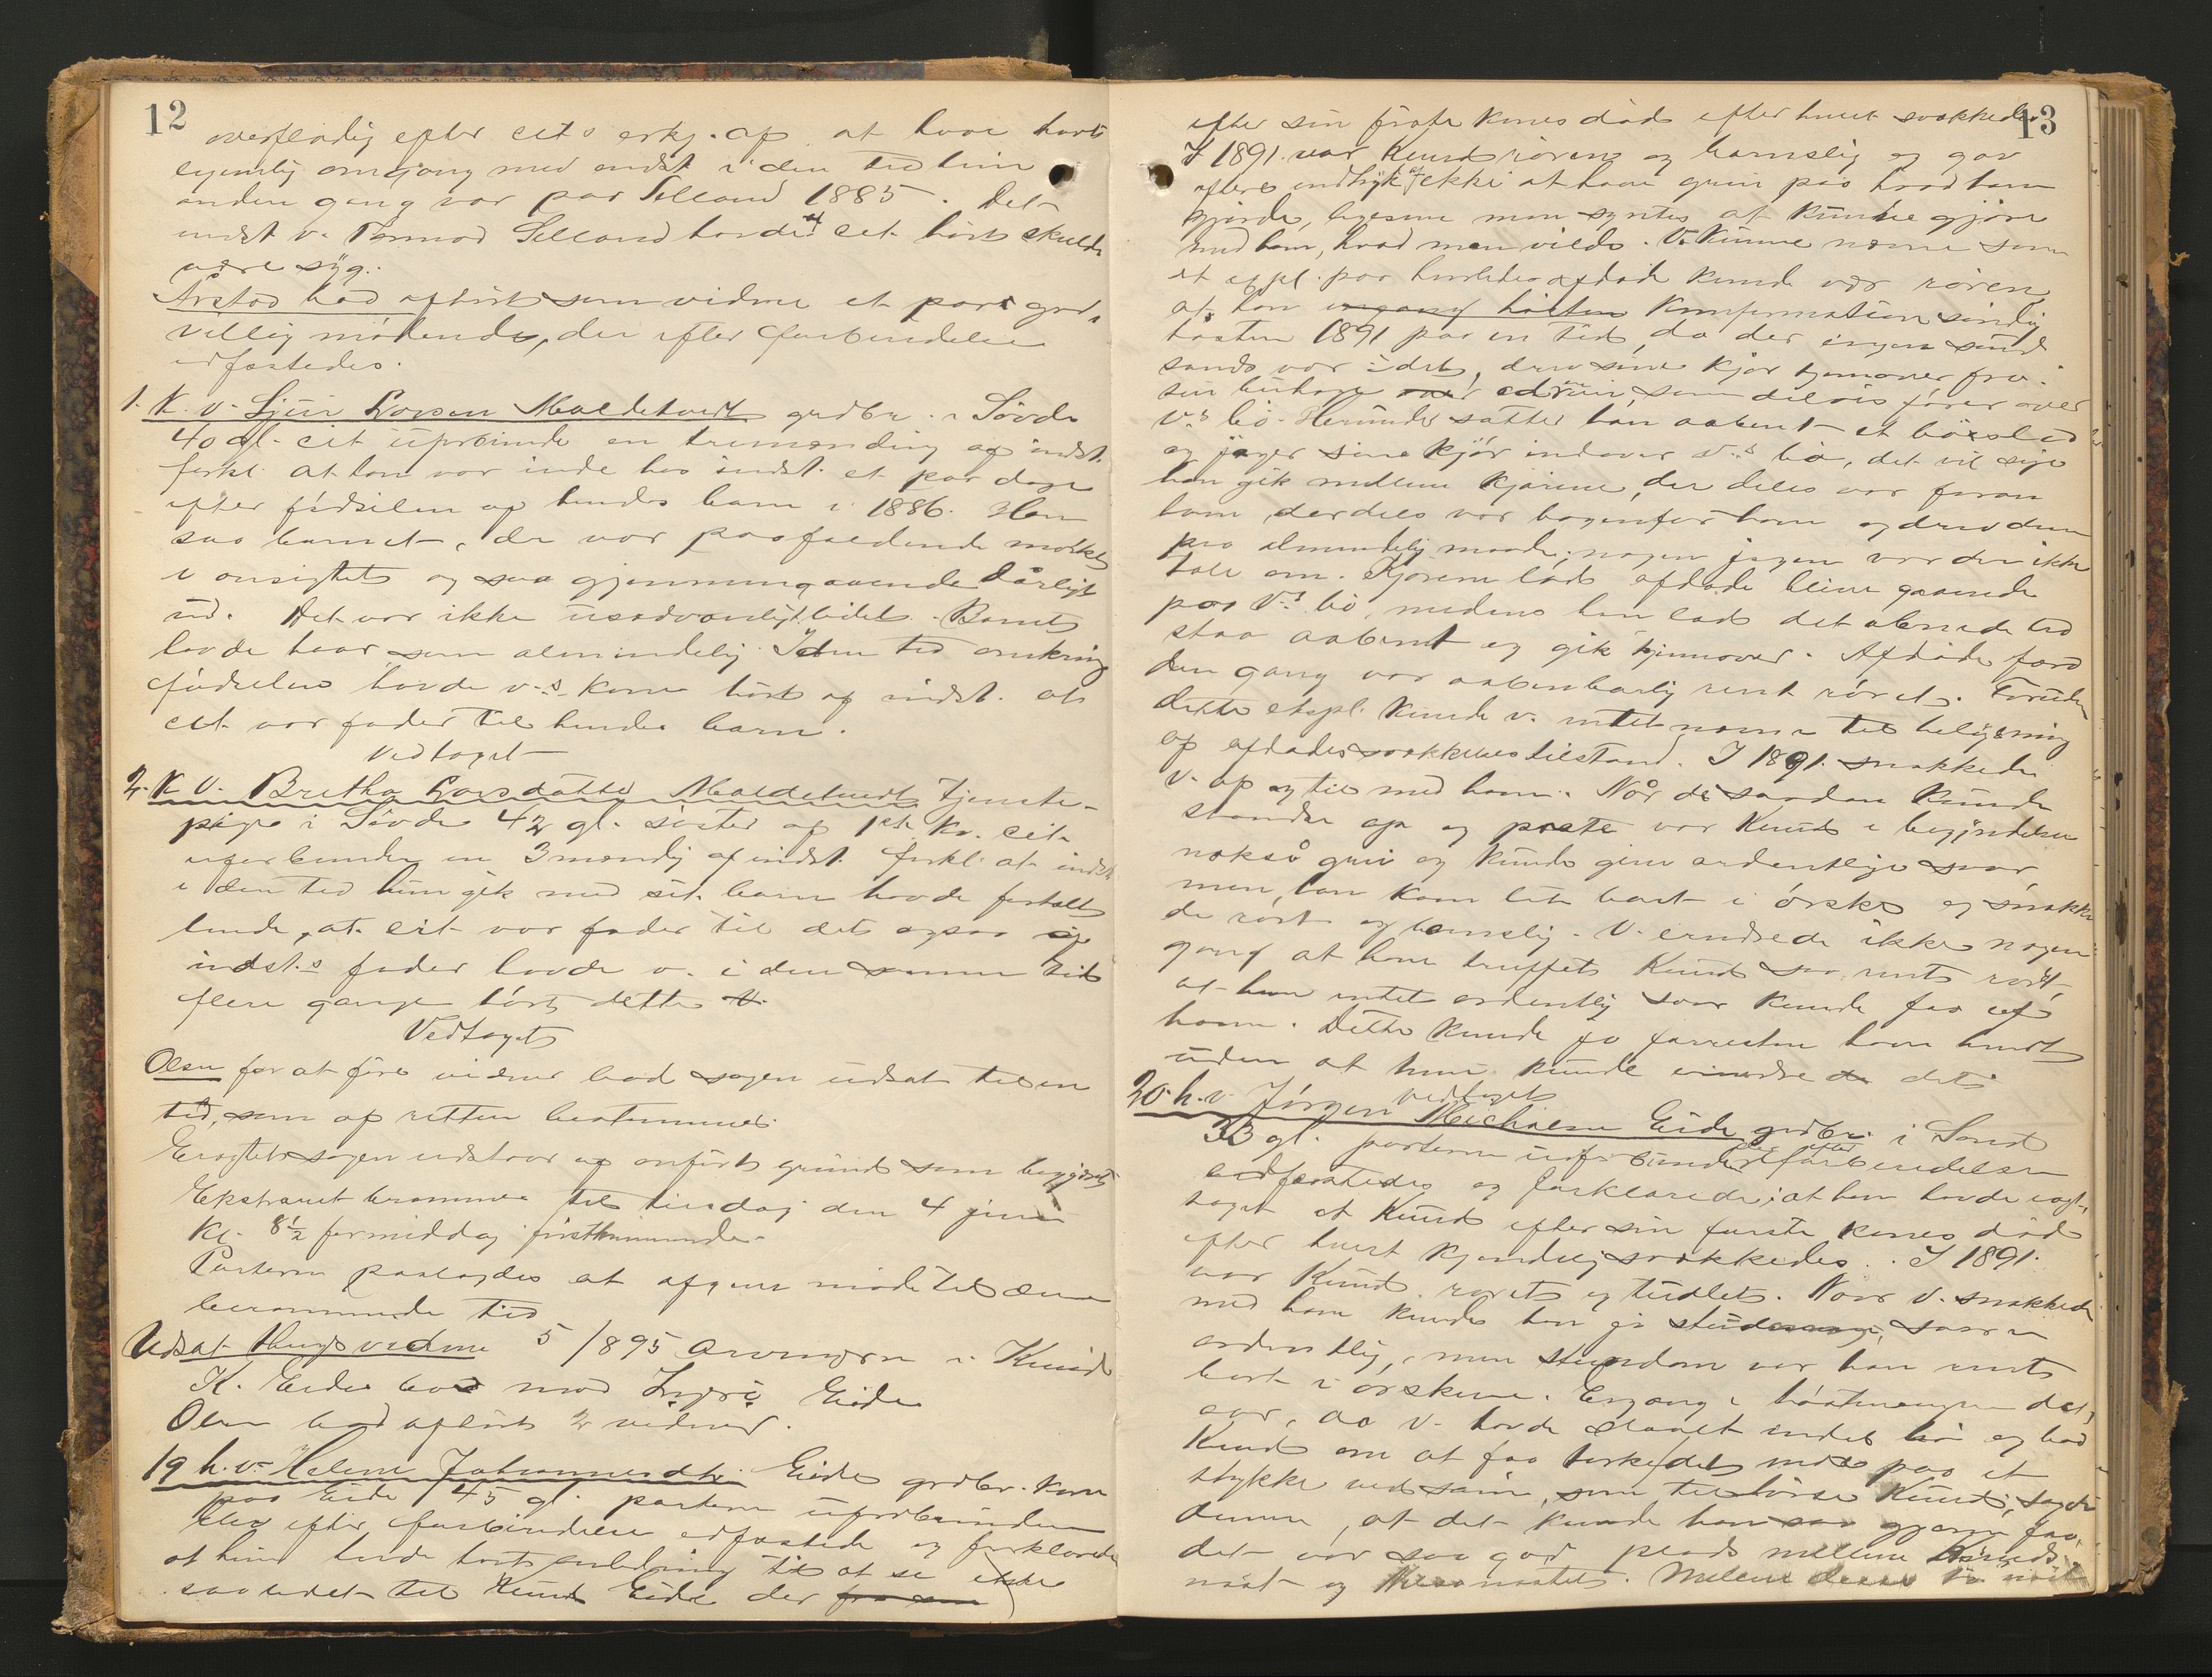 12
overflødig efter cit.s erkj. af at have havt
legemlig omgang med indst i den tid hun
anden gang var paa Selland 1885. Det
indst v. Tormod Selland havde af cit hørt skulde
være syg.
Årstad bad afhørt som vidne et par god-
villig mødende, der efter forberedelse
edfæstedes.
1. K. V. Sjur Larsen Maldetvedt grdbr. i Søvde
40 gl. cit ubeslægtet en tremending af indst.
forkl. at han var inde hos indst. et par dage
efter fødselen af hendes barn i 1886. Han
saa barnet, der var paafaldende mørkt
i ansigtet og saa gjennemgaaende dårligt
ud. Det var ikke usædvanligt lidet. Barnet
havde haar som almindelig. I den tid omkring
fødselen havde v.s kone hørt af indst. at
cit var fader til hendes barn.
Vedtaget
2. K. V. Bretha Larsdatter Maldetvedt tjeneste-
pige i Søvde 42 gl. søster af 1ste kv. cit.
uforbunden en 3mending af indst. forkl. at indst
i den tid hun gik med sit barn havde fortalt
hende, at cit var fader til det ogsaa af
indst.s fader havde v. i den samme tid
flere gange hørt dette.
Vedtaget
Olsen for at føre vidner bad sagen udsat til en
tid, som af retten bestemmes.
Eragtet sagen udstaar af anført grund som begjæret
Ekstraret berammes til tirsdag den 4 juni
kl. 8½ formiddag førstkommende.
Parterne paalagdes at afgive møde til den
berammede tid
Udsat thingsvidne 5/895 Arvingerne i Knud
K. Eides bo mod Ingri Eide
Olsen bad afhørt 2 vidner.
19 h. v. Helene Johannesdtr. Eide grdbr. kone
paa Eide 45 gl. parterne uforbunden
blev efter forberedelse edfæstede og forklarede
at hun havde havt anledning til at se ikke
saa lidet til Knud Eide der
13
efter sin første kones død efter hvert svækkedes
I 1891 var Knud røren og barnslig og gav
oftere indtryk af ikke at have greie paa hvad han
gjorde, ligesom man syntes at kunne gjøre
med ham, hvad man vilde. V. kunne nævne som
et expl. paa hvorledes afdøde kunde vær røren
at han engang høsten Konfirmationssøndag
høsten 1891 paa en tid, da der ingen
var idet, drev sine kjør hjemover fra
sin
v.s bø. Herunder satte han aabent et
og jager sine kjør indover v.s bø, det vil sige
han gik mellem kjørene, der dels var foran
ham, der dels var bagenfor ham og drev dem
paa almindelig maade; nogen jagen var der ikke
tale om. Kjørene lod afdøde blive gaaende
paa v.s bø, medens han lod det aabnede led
staa aabent og gik hjemover. Afdøde færd
den gang var aabenbarlig rent røret. Foruden
dette ekspl. kunde v. intet nævne til belysning
af afdødes svækkelsestilstand. I 1891 snakkede
v. af og til med ham. Når de saadan kunde
standse op og prate var Knud i begyndelsen
nokså grei og kunde give ordentlige svar
men, han kom let bort i ørske og snakke
de rørt og barnslig. V. erindrede ikke nogen
gang at have truffet Knud saa rent rørt,
at hun intet ordentlig svar kunde faa af
ham. Dette kunde jo forresten have hendt
uden at hun kunde erindre det
vedtaget
20. h. v. Jørgen Michalsen Eide grdbr. i Sand
33 gl. parterne uforbunden blev efter forberedelse
edfæstedes og forklarede: at han havde iagt-
taget at Knud efter sin første kones død
efter hvert kjendelig svækkedes. I 1891.
var Knud røret og tullet. Naar v. snakkede
med ham kunde han jo svare
ordentlig, men stundom var han rent
bort i ørskene. Engang i høstningen det
aar, da v. havde slaaet endel hø og bad
Knud om at faa tørke det med paa et
stykke ved søen, som tilhørte Knud, sagde
denne, at det kunde han saa gjerne faa,
det var saa god plads mellem Knuds
nøst og nøstet. Mellem disse to nøst